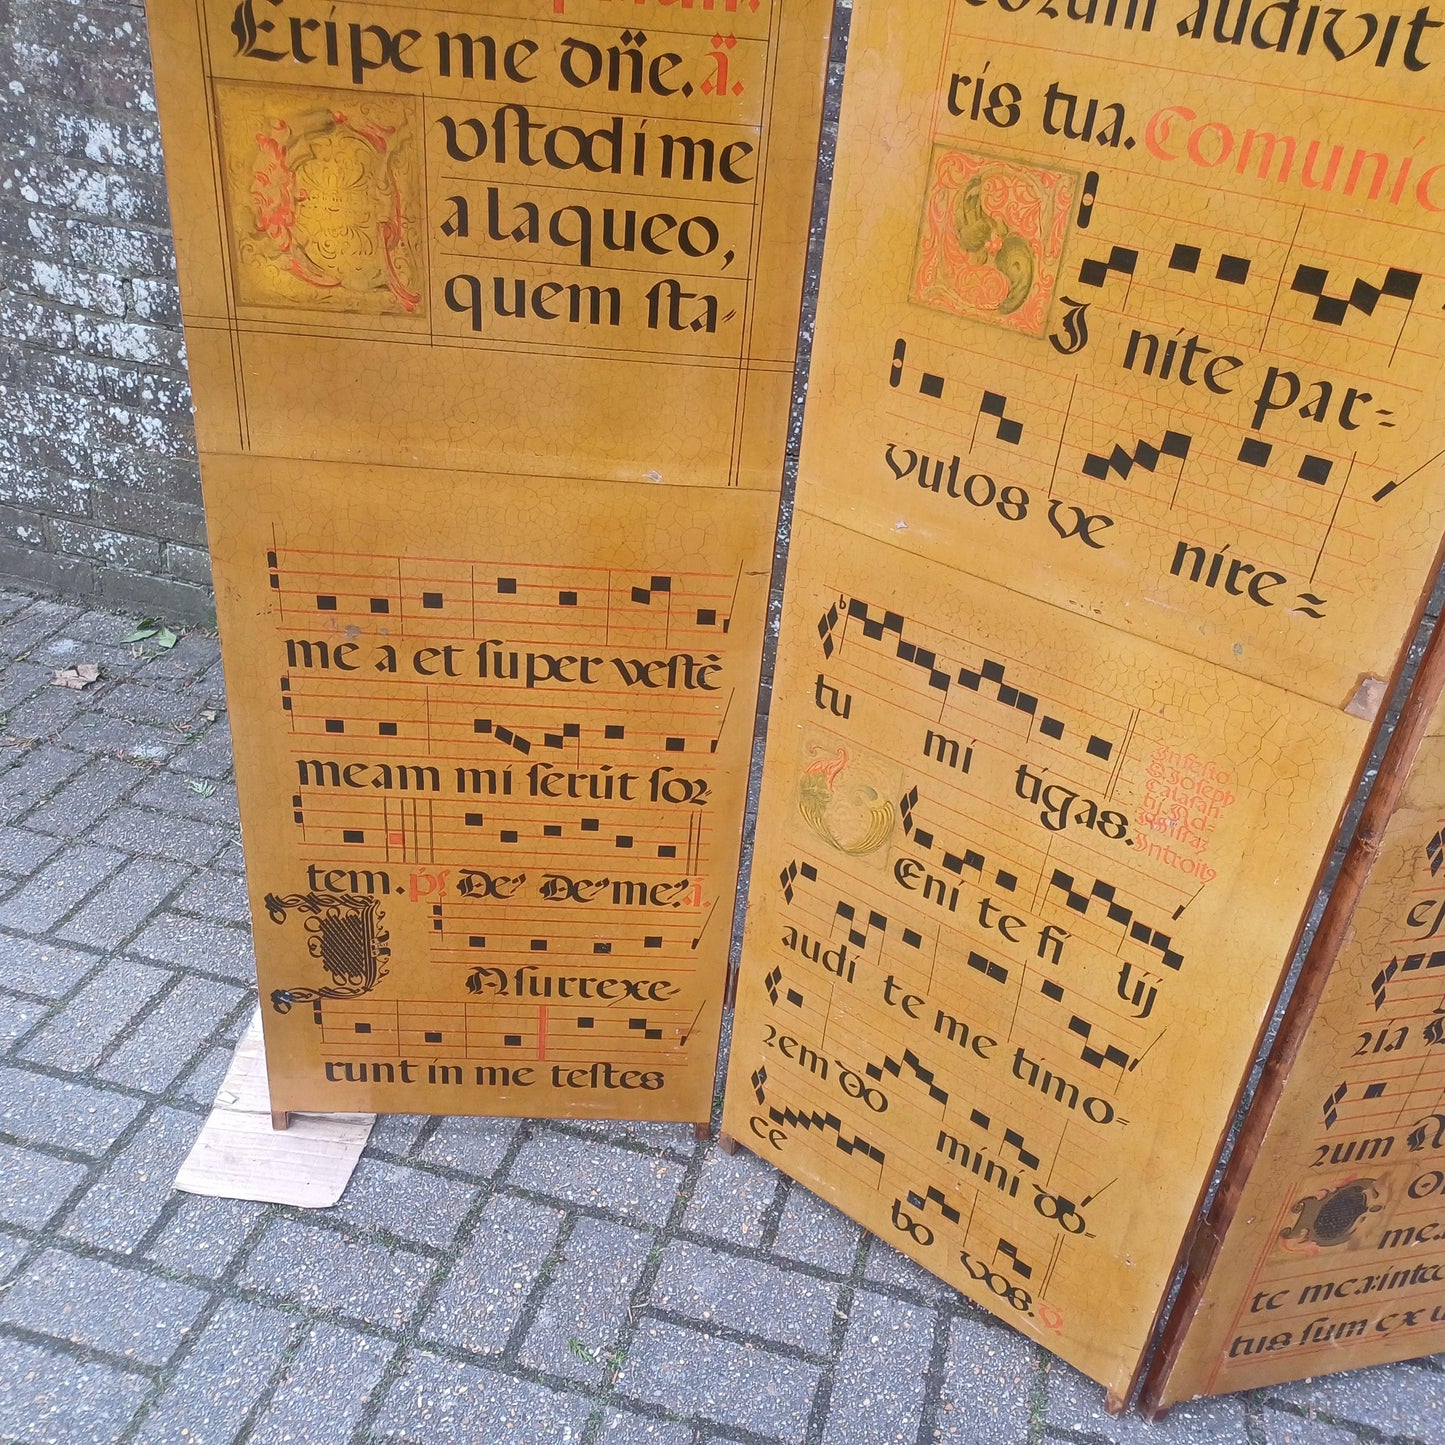 Eripe me dn̄e. ā.
vſtodi me
a laqueo,
quem ſta-
me a et ſuper veſtē
meam mi ſerūt ſor-
tem. ps. De' De' me' ā.
A ſurrexe-
runt in me teſtes
audivit
ris tua. Comunio
S I nite par-
vulos ve nire
tu mi tigas.
In feſto
S. Joseph
Calasan-
tii Ad
Miſſaz
Introitꝰ
V Eni te fi lij
audi te me timo-
rem do mini do-
ce bo vos. v.
ria
rum
te mea: intee
tus ſum ex